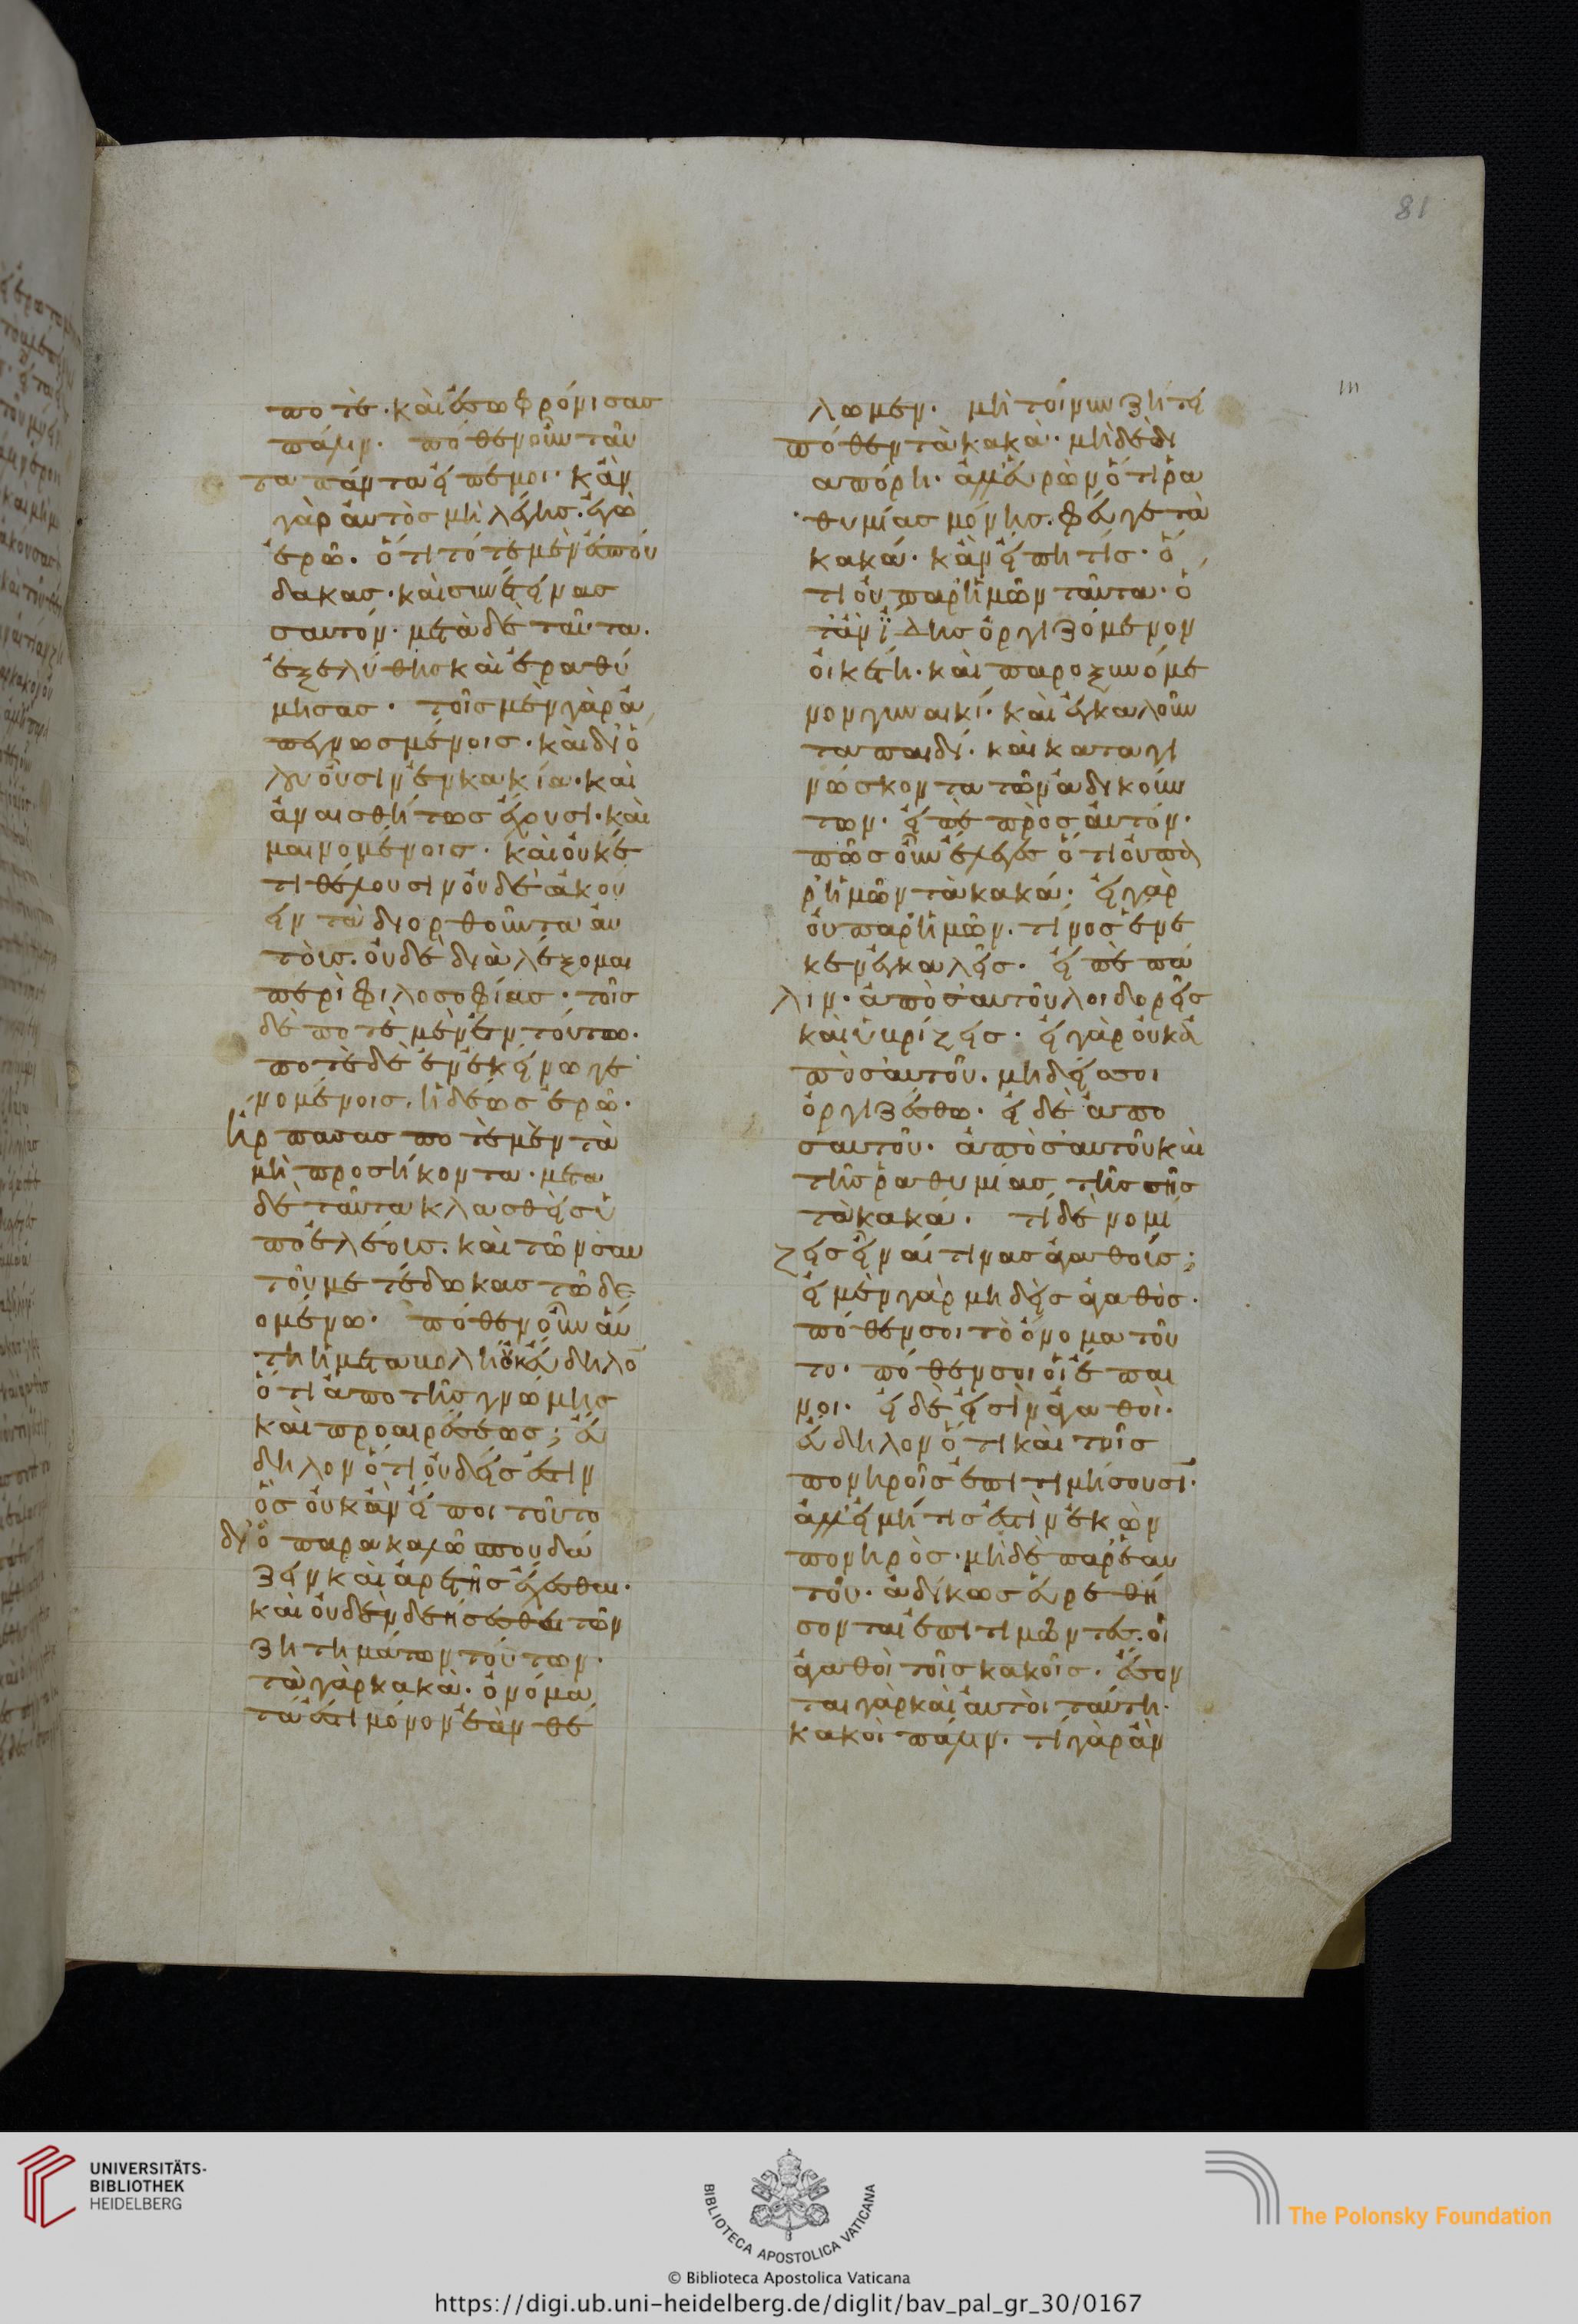 81
ποτὲ· καὶ ἐσωφρόνισας
πάλιν. πόθεν οὖν ταῦ
τα πάντα εἰπέ μοι· κἂν
γὰρ αὐτὸς μὴ λέγης. ἐγὼ
ἐρῶ. ὅτι τότε μὲν ἐσπού
δακας· καὶ συνέτεινας
σαυτόν· μετὰ δὲ ταῦτα.
ἐξελύθης καὶ ἐραθύ
μησας· τοῖς μὲν γὰρ ἀ
πεγνωσμένοις· καὶ δι' ὅ
λου οὖσιν ἐν κακία· καὶ
ἀναισθήτως ἔχουσι· καὶ
μαινομένοις· καὶ οὐκέ
τι θέλουσιν οὐδὲ ἀκού
ειν τὰ διορθοῦντα αὐ
τοὺς. οὐδὲ διαλέξομαι
περὶ φιλοσοφίας· τοῖς
δὲ ποτὲ μὲν ἐν τούτω·
ποτὲ δὲ ἐν ἐκείνω γε
νομένοις, ἡδέως ἐρῶ·
ἥρπασας ποτὲ μὲν τὰ
μὴ προσήκοντα· μετα
δὲ ταῦτα κλασθεὶς ὑ
πὸ ἐλέους. καὶ τῶν σαυ
τοῦ μετέδωκας τῶ δε
ομένω· πόθεν οὖν αὕ
τη ἡ μεταβολὴ οὐκ εὔδηλον
ὅτι ἀπο τῆς γνώμης
καὶ προαιρέσεως; εὔ
δηλον ὅτι οὐδείς ἐστιν
ὃς οὐκ ἂν εἴποι τοῦτο
διὸ παρακαλῶ σπουδά
ζειν καὶ ἀρετῆς ἔχεσθαι·
καὶ οὐδὲν δεήσεσθαι τῶν
ζητημάτων τούτων·
τὰ γὰρ κακὰ· ὀνόμα
τά ἐστι μόνον ἐὰν θέ
λωμεν. μὴ τοίνυν ζήτει
πόθεν τὰ κακὰ· μὴ δὲ δι
απόρει· ἀλλ' εὑρὼν ὅτι ῥα
θυμίας μόνης. φεῦγε τὰ
κακά· κἂν εἴπη τίς· ὅ
τι οὐ παρ' ἡμῶν ταῦτα· ὅ
ταν ἴδης ὀργιζόμενον
οἰκέτη· καὶ παροξυνόμε
νον γυναικί· καὶ ἐγκαλοῦν
τα παιδί· καὶ καταγι
νώσκοντα τῶν ἀδικούν
των· εἰπὲ πρὸς αὐτόν·
πῶς οὖν ἔλεγες ὅτι οὐ πα
ρ' ἡμῶν τὰ κακά· εἰ γὰρ
οὐ παρ' ἡμῶν. τίνος ἕνε
κεν ἐγκαλεῖς· εἰπὲ πά
λιν· ἀπὸ σαυτοῦ λοιδορεῖς
καὶ ὑβρίζεις· εἰ γὰρ οὐκ ἀ
πὸ σαυτοῦ. μηδείς σοι
ὀργιζέσθω· εἰ δὲ ἀπο
σαυτοῦ· ἀπὸ σαυτοῦ καὶ
τῆς ῥαθυμίας τῆς σῆς
τὰ κακά. τί δὲ νομί
ζεις εἶναί τινας ἀγαθούς;
εἰ μὲν γὰρ μηδεὶς ἀγαθὸς·
πόθεν σοι τὸ ὄνομα τοῦ
το· πόθεν σοι οἱ ἔπαι
νοι· εἰ δὲ εἰσὶν ἀγαθοὶ·
εὔδηλον ὅτι καὶ τοῖς
πονηροῖς ἐπιτιμήσουσι·
ἀλλ' εἰ μή τίς ἐστὶν ἑκὼν
πονηρὸς· μὴ δὲ παρ' ἑαυ
τοῦ· ἀδίκως εὑρεθή
σονται ἐπιτιμῶντες. οἱ
ἀγαθοὶ τοῖς κακοῖς· ἔσον
ται γὰρ καὶ αὐτοὶ ταύτη·
κακοὶ πάλιν. τί γὰρ ἂν
UNIVERSITÄTS-
BIBLIOTHEK
HEIDELBERG
BIBLIOTECA APOSTOLICA VATICANA
The Polonsky Foundation
© Biblioteca Apostolica Vaticana
https://digi.ub.uni-heidelberg.de/diglit/bav_pal_gr_30/0167